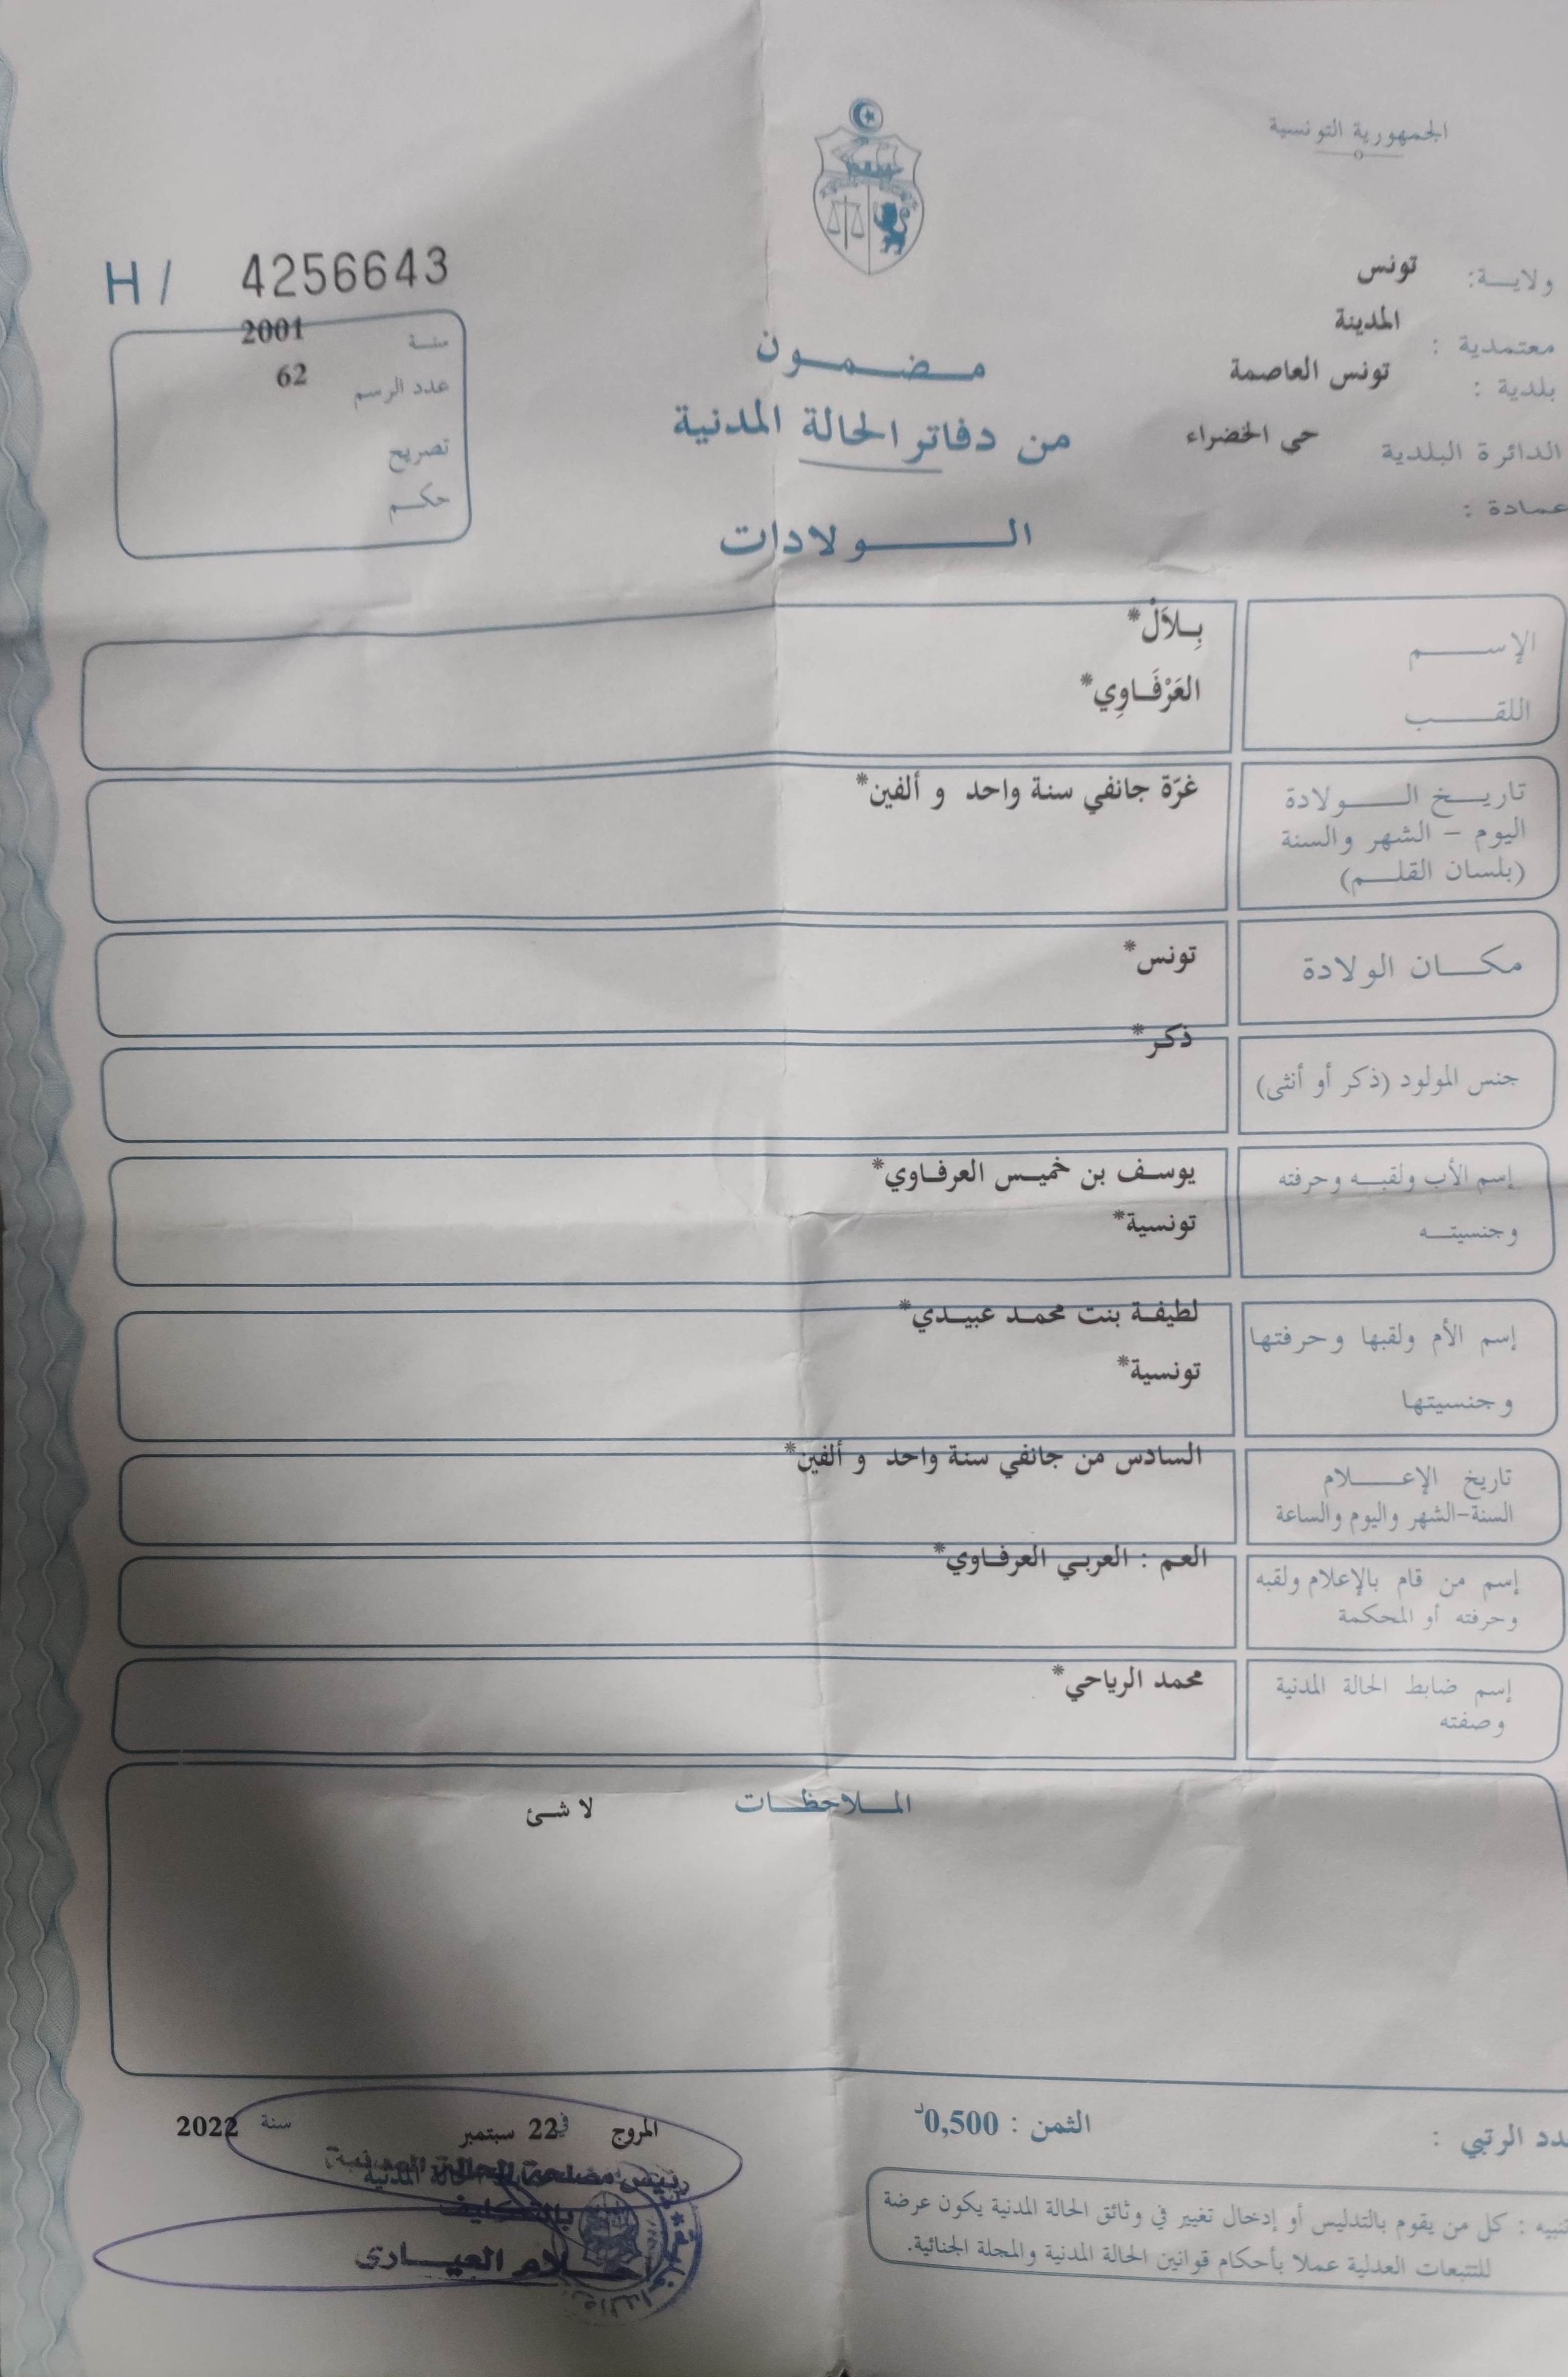 الجمهورية التونسية
ولاية: تونس
معتمدية : المدينة
بلدية : تونس العاصمة
الدائرة البلدية حي الخضراء
عمادة :
H / 4256643
سنة 2001
عدد الرسم 62
تصريح
حكم
مضمون
من دفاتر الحالة المدنية
الولادات
الإسم بِلاَلْ*
اللقب العَرْفَاوِي*
تاريخ الولادة غرّة جانفي سنة واحد و ألفين*
اليوم – الشهر والسنة
(بلسان القلم)
مكان الولادة تونس*
جنس المولود (ذكر أو أنثى) ذكر*
إسم الأب ولقبه وحرفته يوسف بن خميس العرفاوي*
وجنسيته تونسية*
إسم الأم ولقبها وحرفتها لطيفة بنت محمد عبيدي*
وجنسيتها تونسية*
تاريخ الإعلام السادس من جانفي سنة واحد و ألفين*
السنة-الشهر واليوم والساعة
إسم من قام بالإعلام ولقبه العم : العربي العرفاوي*
وحرفته أو المحكمة
إسم ضابط الحالة المدنية محمد الرياحي*
وصفته
الملاحظات لا شئ
الرتبي : الثمن : 0,500د
المروج في 22 سبتمبر سنة 2022
رئيس مصلحة الحالة المدنية
بالتكليف
العياري
كل من يقوم بالتدليس أو إدخال تغيير في وثائق الحالة المدنية يكون عرضة
للتتبعات العدلية عملا بأحكام قوانين الحالة المدنية والمجلة الجنائية.